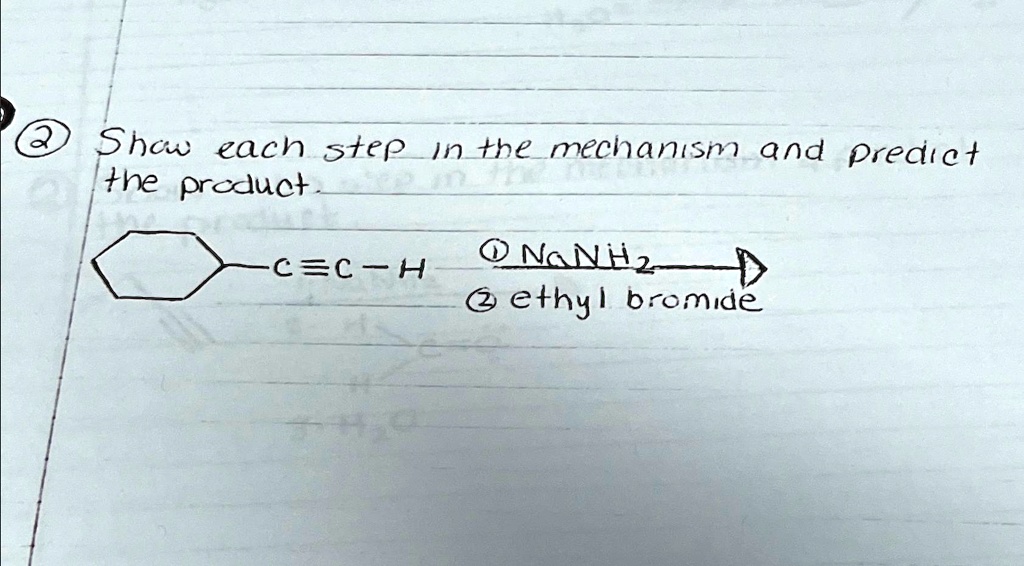 ② Show each step in the mechanism and predict
the product.
-C≡C-H ① NaNH₂
② ethyl bromide